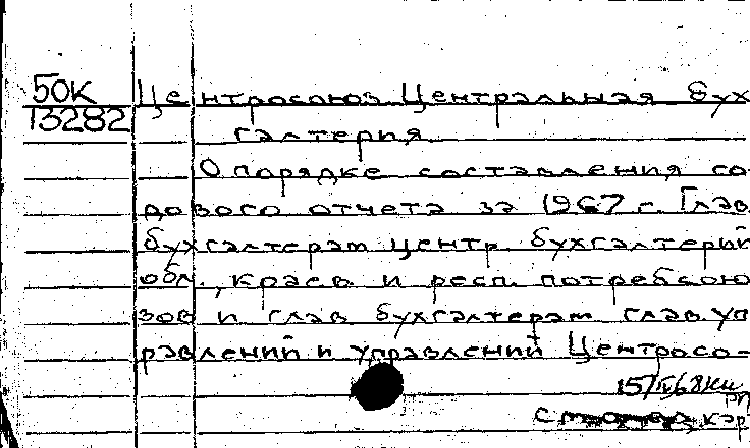 50К Центросоюз Центральная бух
13282
галтерия
О порядке составления го
дового отчета за 1967 г. Глав
бухгалтерам центр. бухгалтерий
обл., краев и респ. потребсою
зов и глав бухгалтерам глав.уп
равлений и управлений Центросо-
с кар